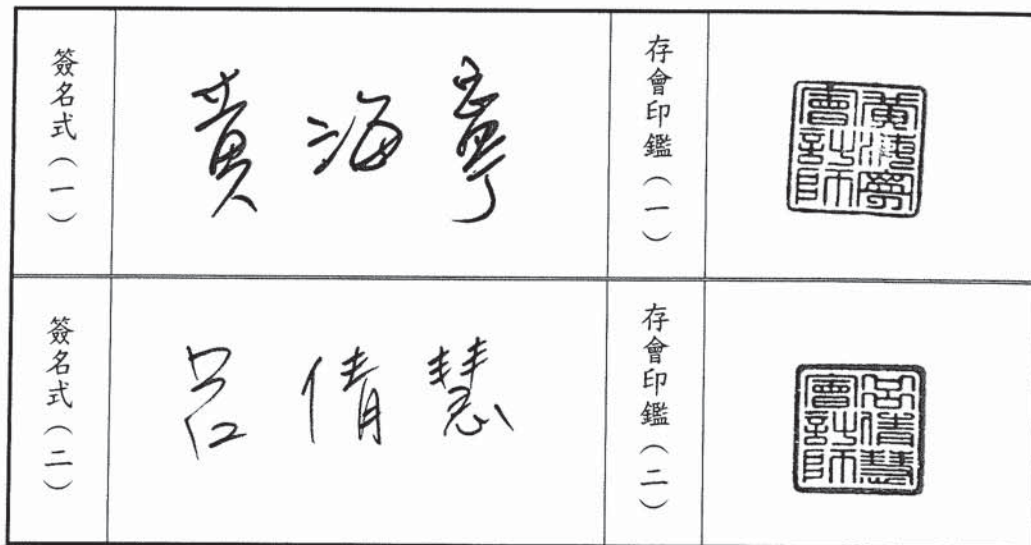 簽名式(一)
黃海寧
存會印鑑(一)
黃海寧會計師
簽名式(二)
呂倩慧
存會印鑑(二)
呂倩慧會計師